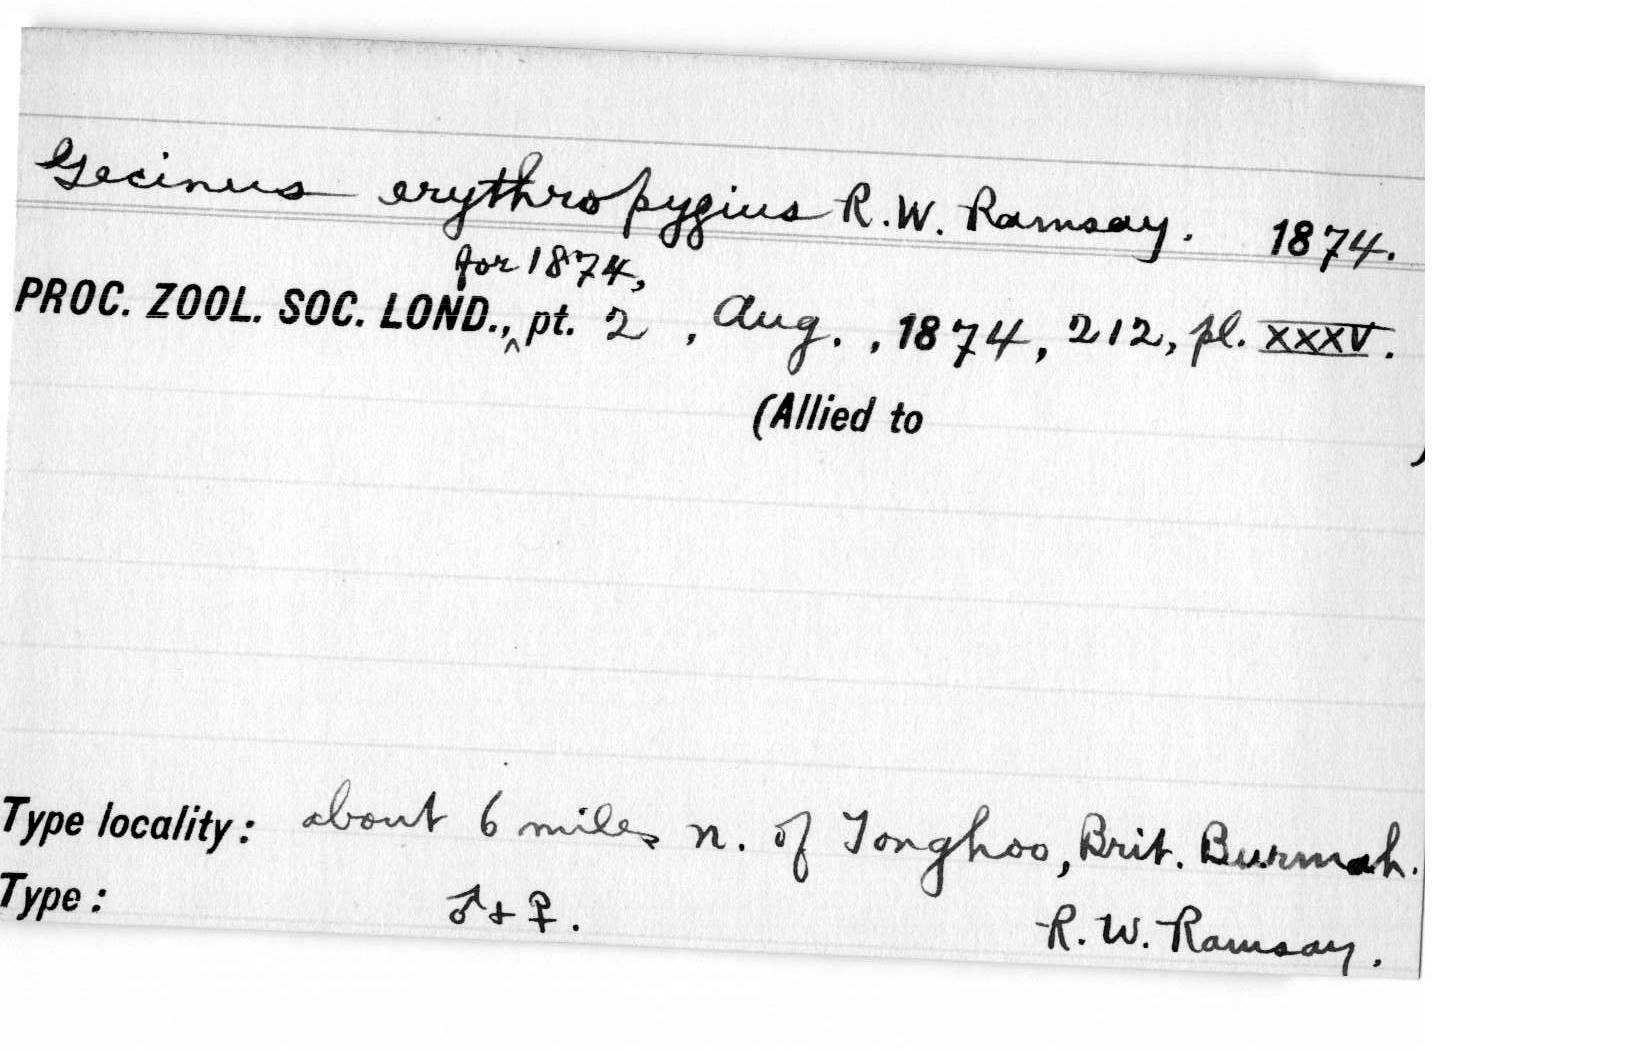 Gecinus erythropygius R.W. Ramsay. 1874.
for 1874,
PROC. ZOOL. SOC. LOND.,^ pt. 2, Aug., 1874, 212, pl. XXXV.
(Allied to )
Type locality: about 6 miles n. of Tonghoo, Brit. Burmah.
Type: ♂+♀. R.W. Ramsay.